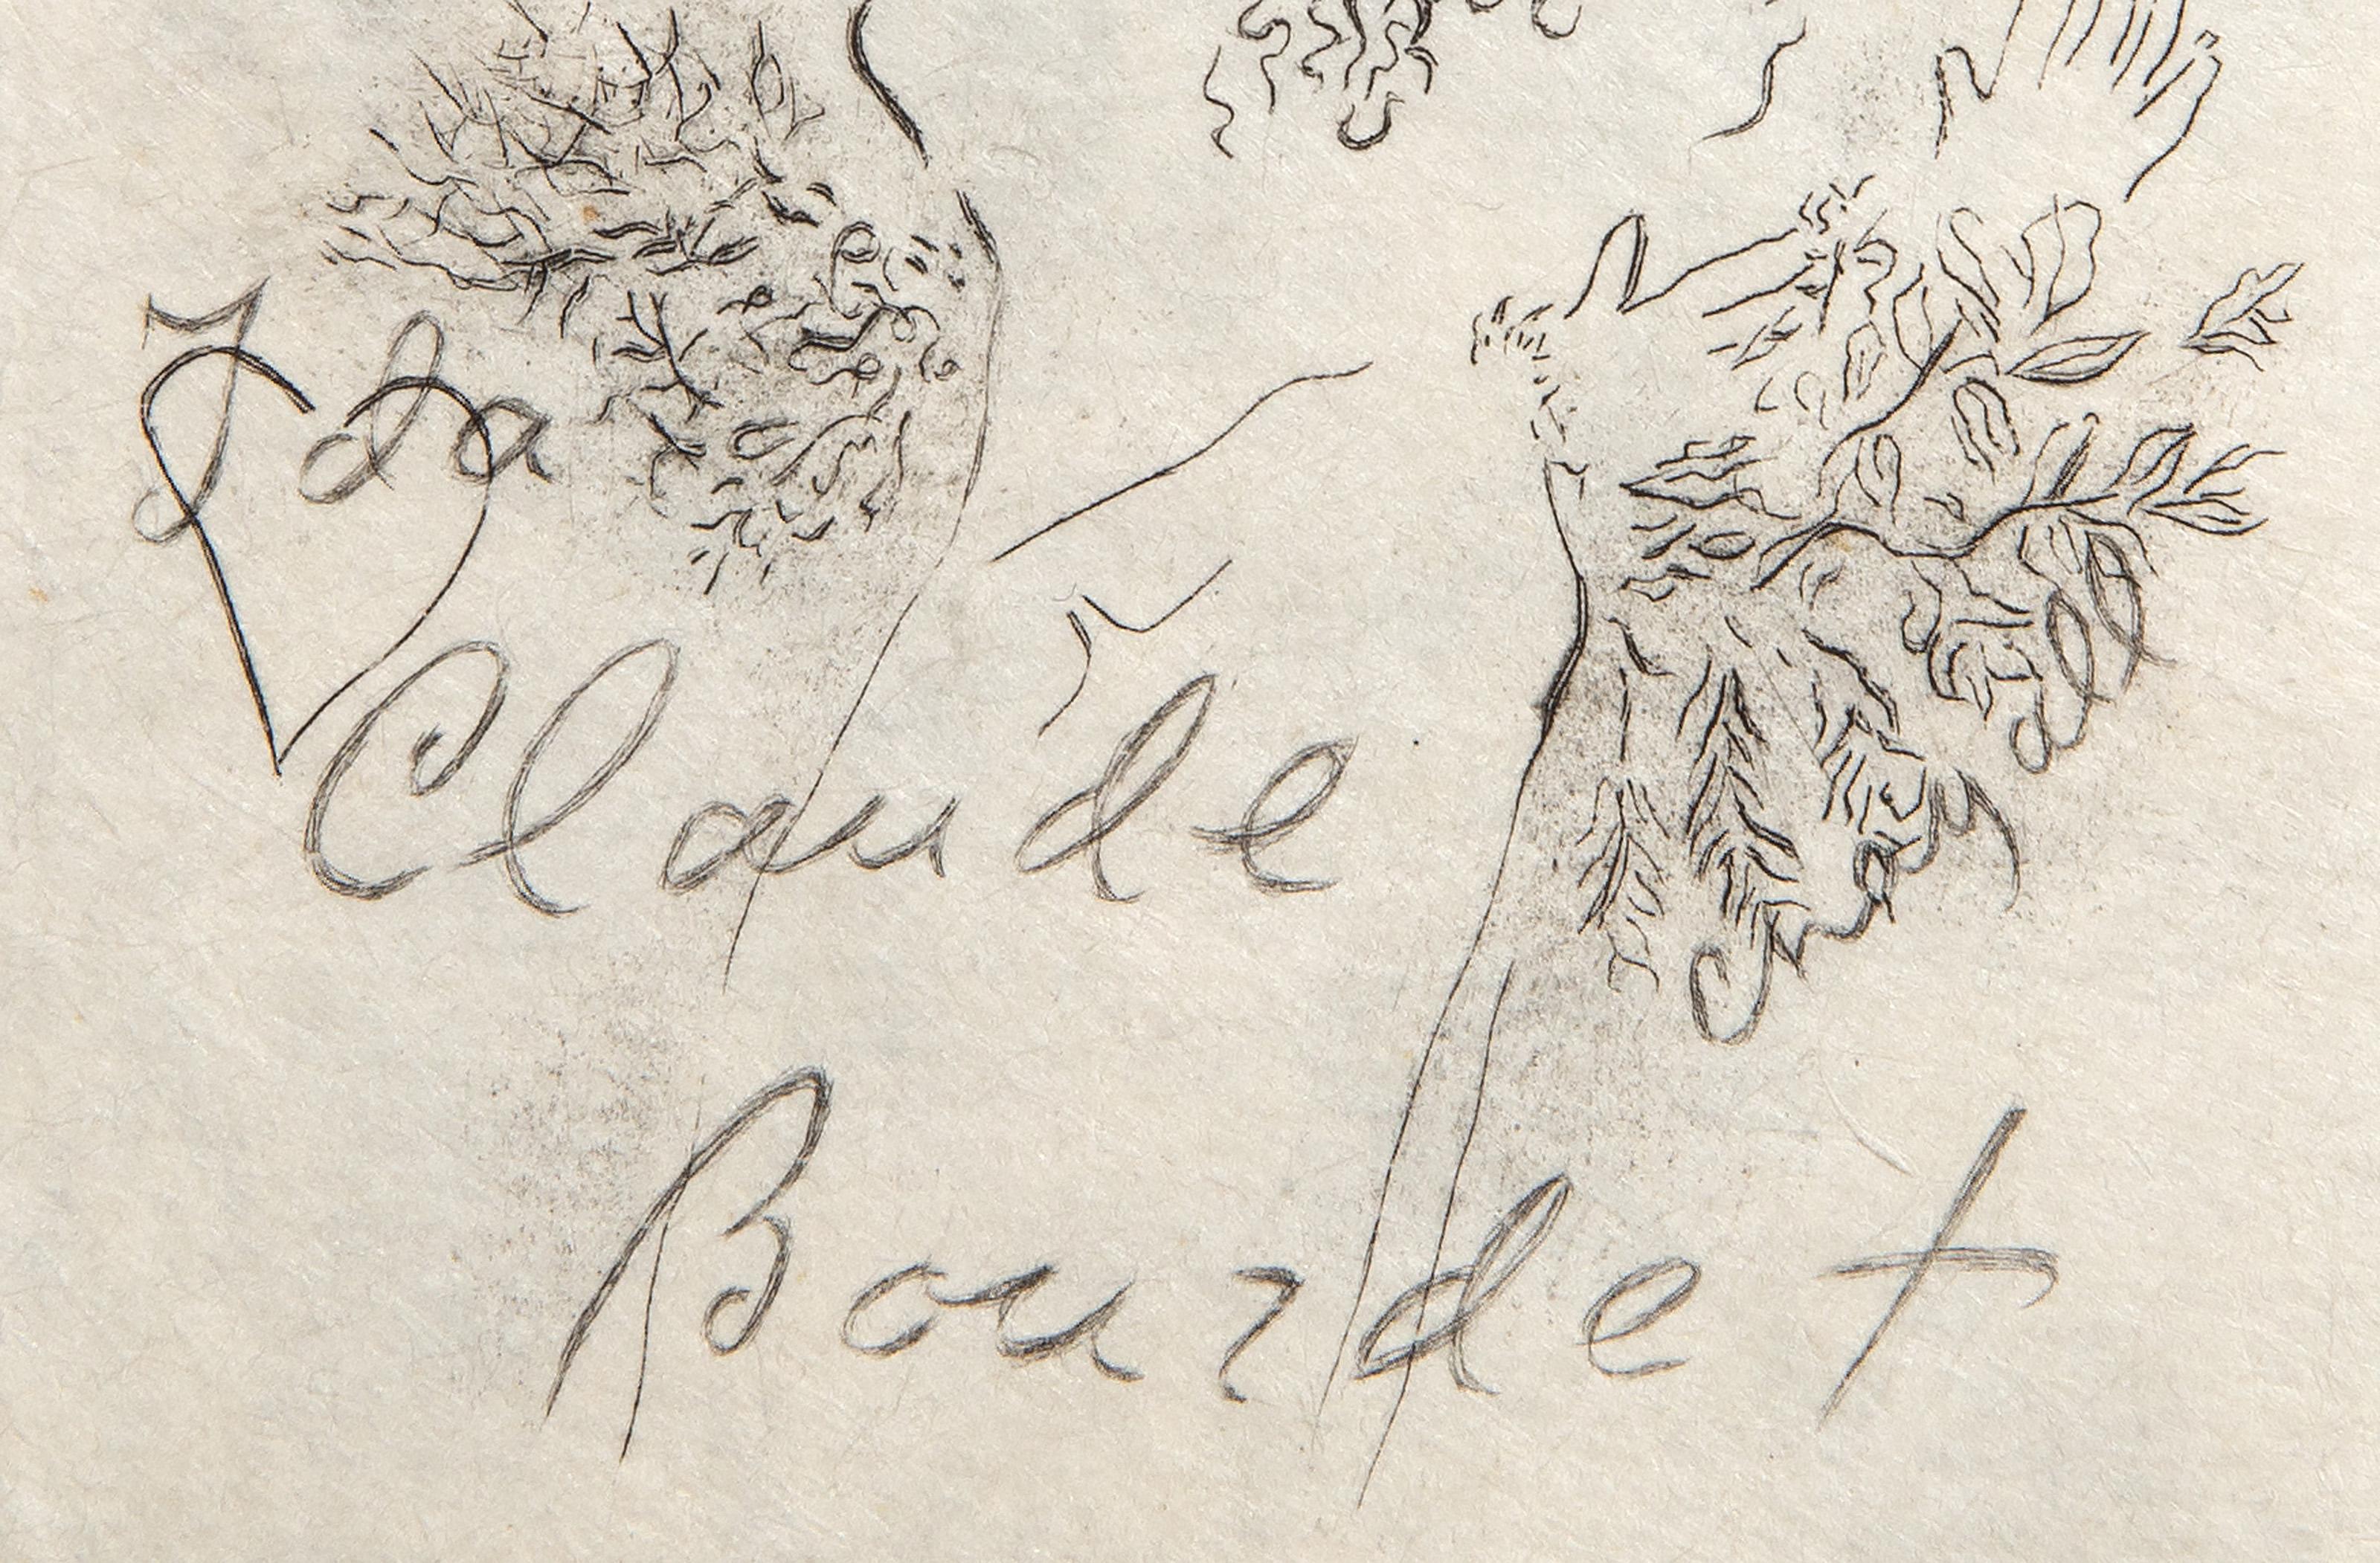 Ida
Claude
Bourdet